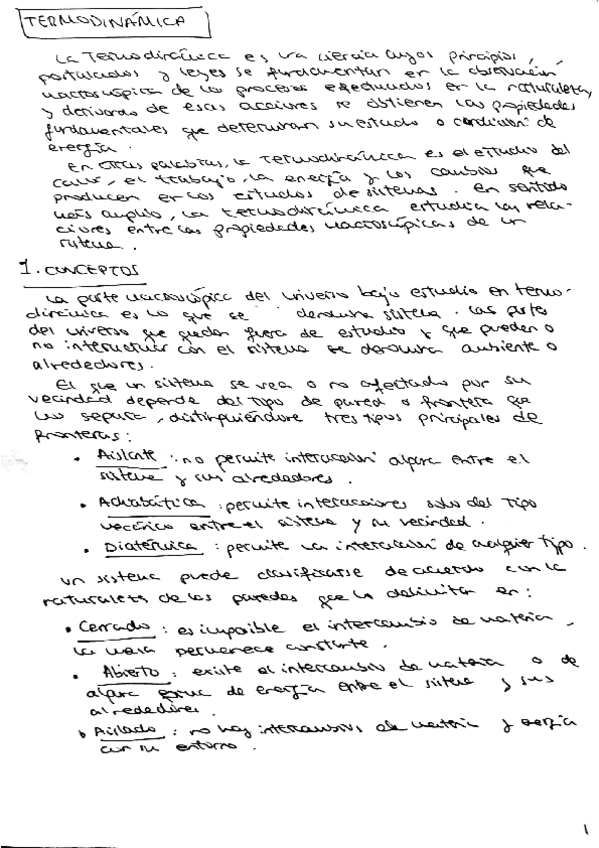 TERMODINÁMICA
La Termodinámica es una ciencia cuyos principios,
postulados y leyes se fundamentan en la observación
macroscópica de los procesos efectuados en la naturaleza,
y derivando de esas acciones se obtienen las propiedades
fundamentales que determinan su estado o condición de
energía.
En otras palabras, la Termodinámica es el estudio del
calor, el trabajo, la energía y los cambios que
producen en los estados de sistemas. En sentido
más amplio, la termodinámica estudia las rela-
ciones entre las propiedades macroscópicas de un
sistema.
1. CONCEPTOS
La parte macroscópica del universo bajo estudio en termo-
dinámica es lo que se denomina sistema. Las partes
del universo que quedan fuera de estudio y que pueden o
no interactuar con el sistema se denomina ambiente o
alrededores.
El que un sistema se vea o no afectado por su
vecindad depende del tipo de pared o frontera que
los separa, distinguiéndose tres tipos principales de
fronteras:
• Aislante: no permite interacción alguna entre el
sistema y sus alrededores.
• Adiabática: permite interacciones solo del tipo
mecánico entre el sistema y su vecindad.
• Diatérmica: permite la interacción de cualquier tipo.
Un sistema puede clasificarse de acuerdo con la
naturaleza de las paredes que lo delimitan en:
• Cerrado: es imposible el intercambio de materia,
la masa permanece constante.
• Abierto: existe el intercambio de materia o de
alguna forma de energía entre el sistema y sus
alrededores.
• Aislado: no hay intercambios de materia y energía
con su entorno.
1